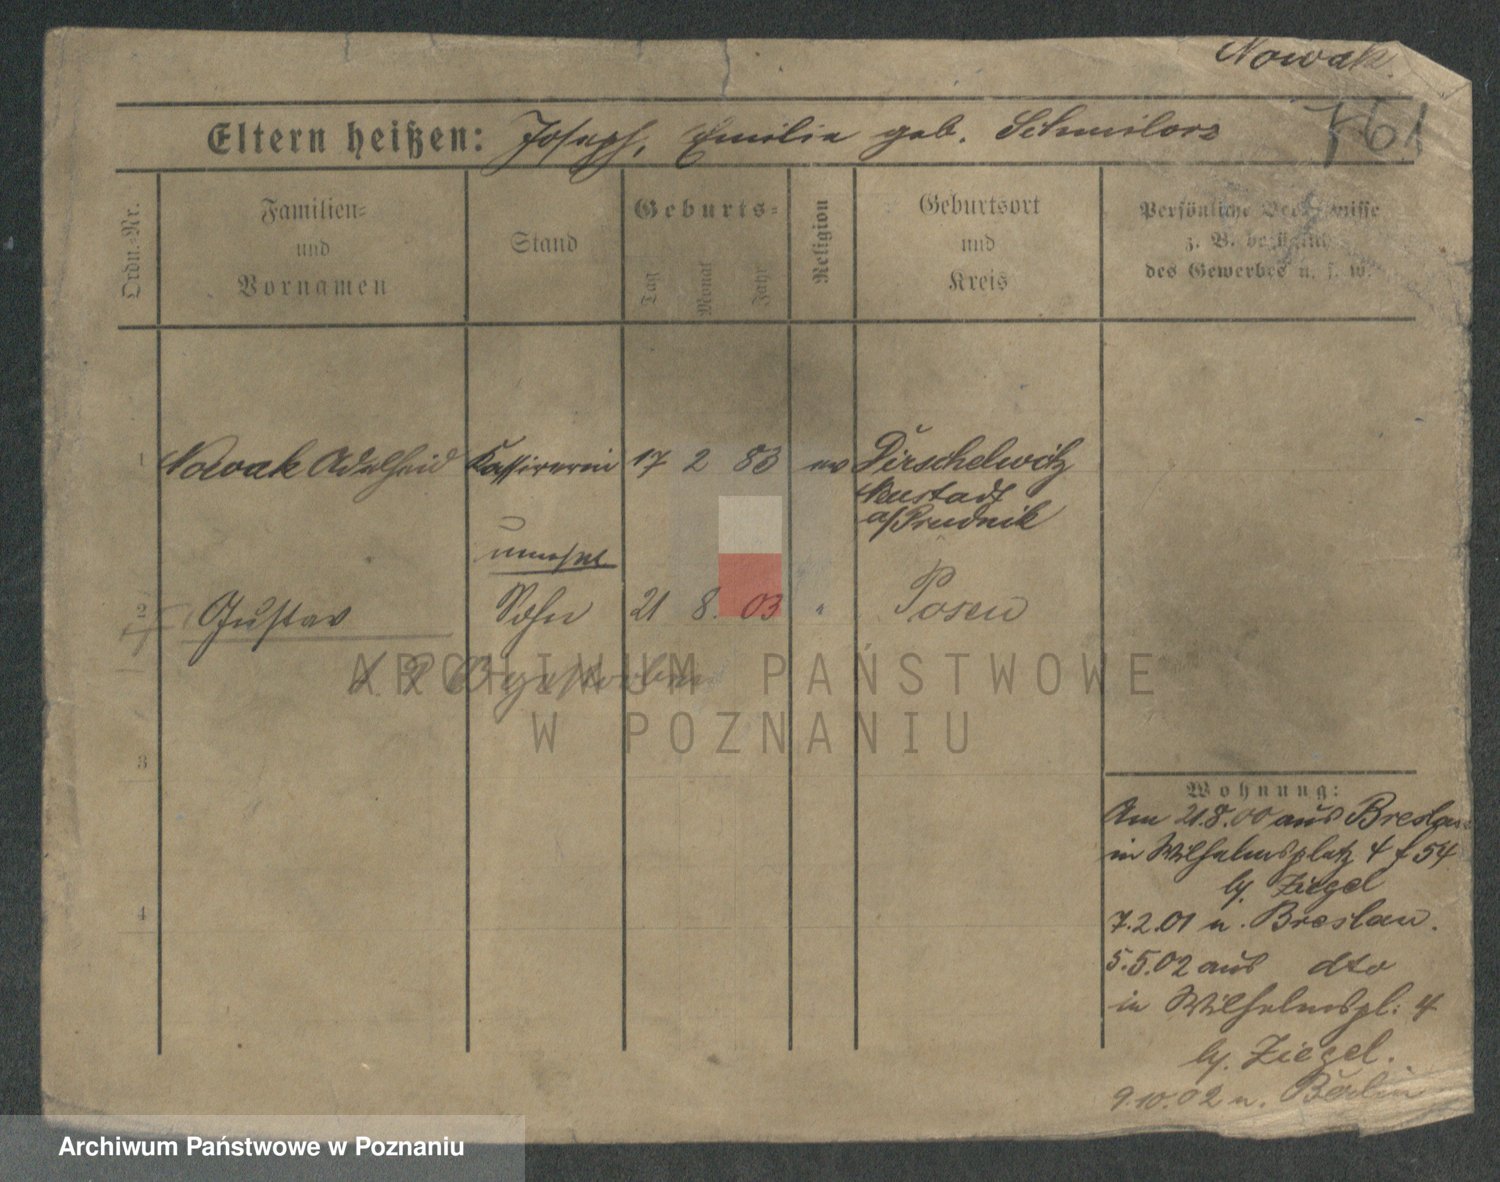 Nowak.
Eltern heißen: Joseph, Emilie geb. Schmilorz
761
Ordn.=Nr.
Familien=
und
Vornamen
Stand
Geburts=
Tag
Monat
Jahr
Religion
Geburtsort
und
Kreis
Persönliche
z. B. bezüglich
des Gewerbes u. s. w.
1 Nowak Adelheid Kassirerin 17 2 83 ev Dirschelwitz
Neustadt
a/Prudnik
unehel
2 Gustav Sohn 21 8. 03 " Posen
gestorben
ARCHIWUM PAŃSTWOWE
W POZNANIU
3
4
Wohnung:
Am 21.8.00 aus Breslau
in Wilhelmsplatz 4 f 54
b/. Ziegel
7.2.01 n. Breslau.
5.5.02 aus dto
in Wilhelmspl: 4
b/. Ziegel.
9.10.02 n. Berlin
Archiwum Państwowe w Poznaniu